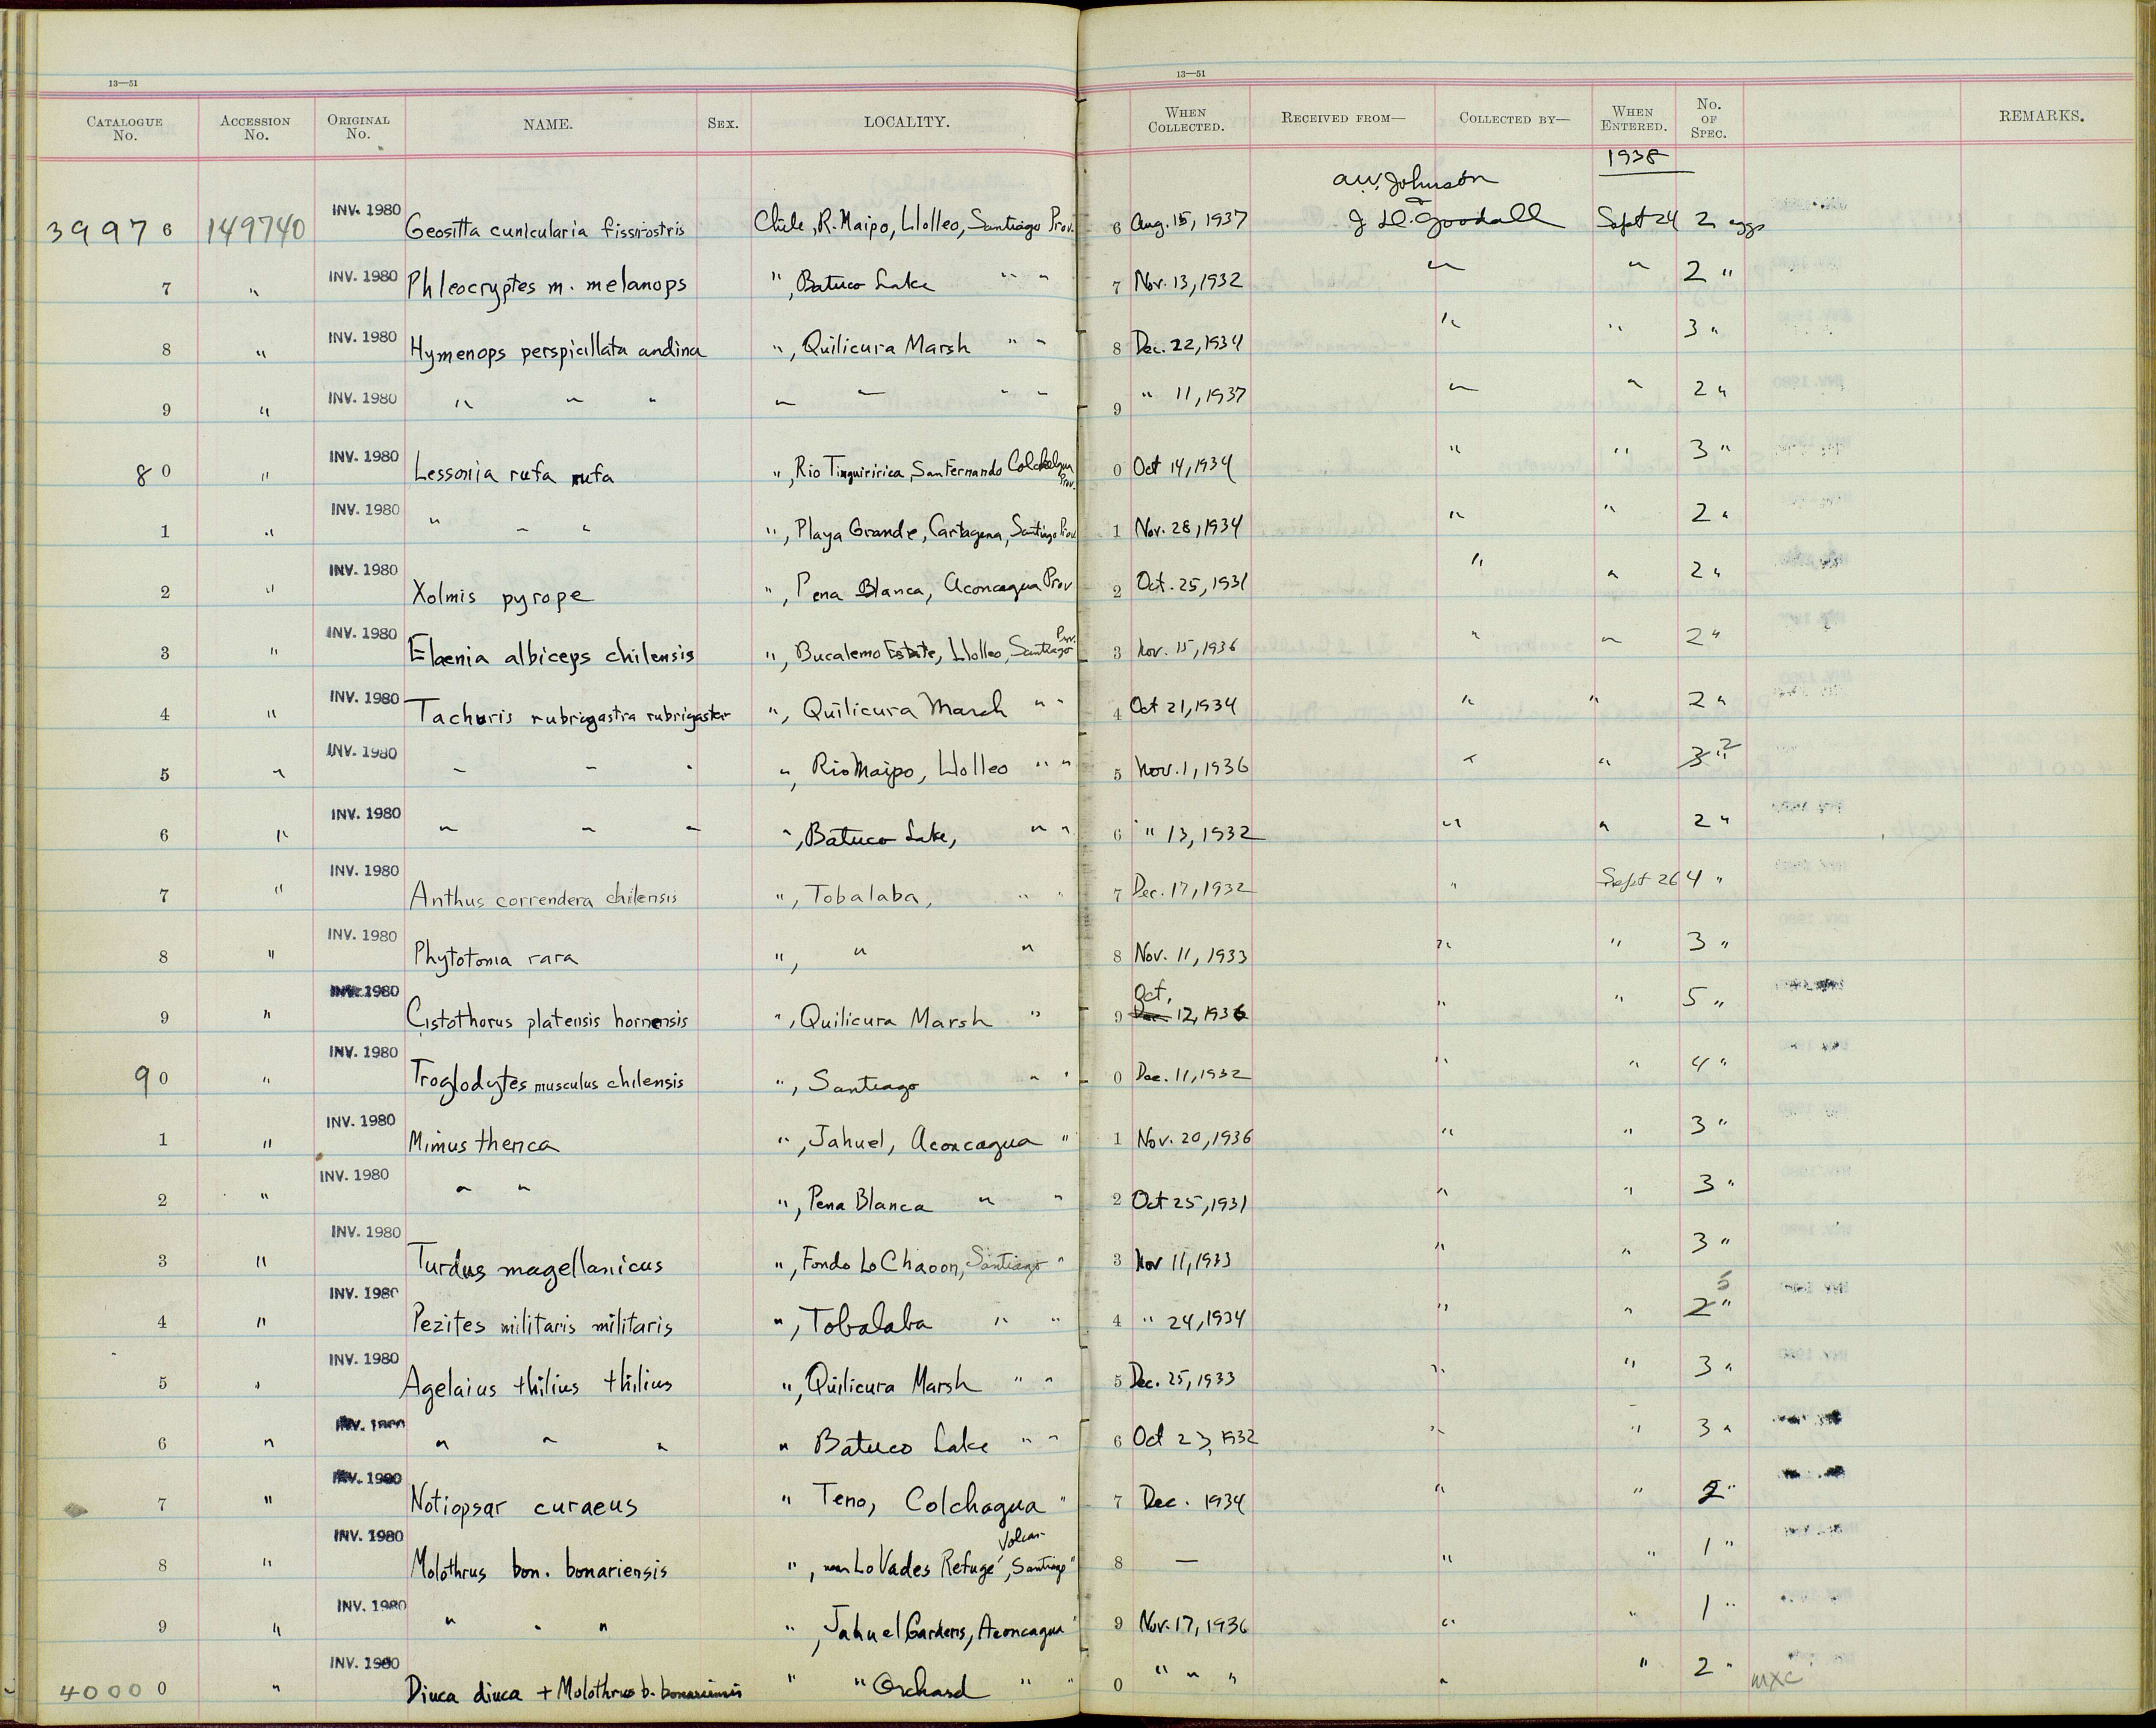 13—51
13—51
CATALOGUE No. ACCESSION No. ORIGINAL No. NAME. SEX. LOCALITY. WHEN COLLECTED. RECEIVED FROM— COLLECTED BY— WHEN ENTERED. No. OF SPEC. REMARKS.
1938
A.W. Johnson
&
39976 149740 INV. 1980 Geositta cunicularia fissirostris Chile, R. Maipo, Llolleo, Santiago Prov. 6 Aug. 15, 1937 J. D. Goodall Sept 24 2 eggs
7 " INV. 1980 Phleocryptes m. melanops ", Batuco Lake " " 7 Nov. 13, 1932 " " 2 "
8 " INV. 1980 Hymenops perspicillata andina ", Quilicura Marsh " " 8 Dec. 22, 1934 " " 3 "
9 " INV. 1980 " " " " " " " 9 " 11, 1937 " " 2 "
80 " INV. 1980 Lessonia rufa rufa ", Rio Tinguiririca, San Fernando Colchagua Prov. 0 Oct 14, 1934 " " 3 "
1 " INV. 1980 " " " ", Playa Grande, Cartagena, Santiago Prov. 1 Nov. 28, 1934 " " 2 "
2 " INV. 1980 Xolmis pyrope ", Pena Blanca, Aconcagua Prov 2 Oct. 25, 1931 " " 2 "
3 " INV. 1980 Elaenia albiceps chilensis ", Bucalemo Estate, Llolleo, Santiago Prov. 3 Nov. 15, 1936 " " 2 "
4 " INV. 1980 Tachuris rubrigastra rubrigastra ", Quilicura Marsh " " 4 Oct 21, 1934 " " 2 "
5 " INV. 1980 " " " ", Rio Maipo, Llolleo " " 5 Nov. 1, 1936 " " 3 2 "
6 " INV. 1980 " " " ", Batuco Lake, " " 6 " 13, 1932 " " 2 "
7 " INV. 1980 Anthus correndera chilensis ", Tobalaba, " " 7 Dec. 17, 1932 " Sept 26 4 "
8 " INV. 1980 Phytotoma rara ", " " 8 Nov. 11, 1933 " " 3 "
9 " INV. 1980 Cistothorus platensis hornensis ", Quilicura Marsh " 9 Dec Oct. 12, 1936 " " 5 "
90 " INV. 1980 Troglodytes musculus chilensis ", Santiago " " 0 Dec. 11, 1932 " " 4 "
1 " INV. 1980 Mimus thenca ", Jahuel, Aconcagua " 1 Nov. 20, 1936 " " 3 "
2 " INV. 1980 " " ", Pena Blanca " " 2 Oct 25, 1931 " " 3 "
3 " INV. 1980 Turdus magellanicus ", Fondo Lo Chacon, Santiago " 3 Nov 11, 1933 " " 3 "
4 " INV. 1980 Pezites militaris militaris ", Tobalaba " " 4 " 24, 1934 " " 2 5 "
5 " INV. 1980 Agelaius thilius thilius ", Quilicura Marsh " " 5 Dec. 25, 1933 " " 3 "
6 " INV. 1980 " " " " Batuco Lake " " 6 Oct 23, 1932 " " 3 "
7 " INV. 1980 Notiopsar curaeus " Teno, Colchagua " 7 Dec. 1934 " " 2 "
8 " INV. 1980 Molothrus bon. bonariensis ", near Lo Vades Refuge, Volcan Santiago " 8 — " " 1 "
9 " INV. 1980 " " " ", Jahuel Gardens, Aconcagua " 9 Nov. 17, 1936 " " 1 "
40000 " INV. 1980 Diuca diuca + Molothrus b. bonariensis " " Orchard " " 0 " " " " " 2 " mxc